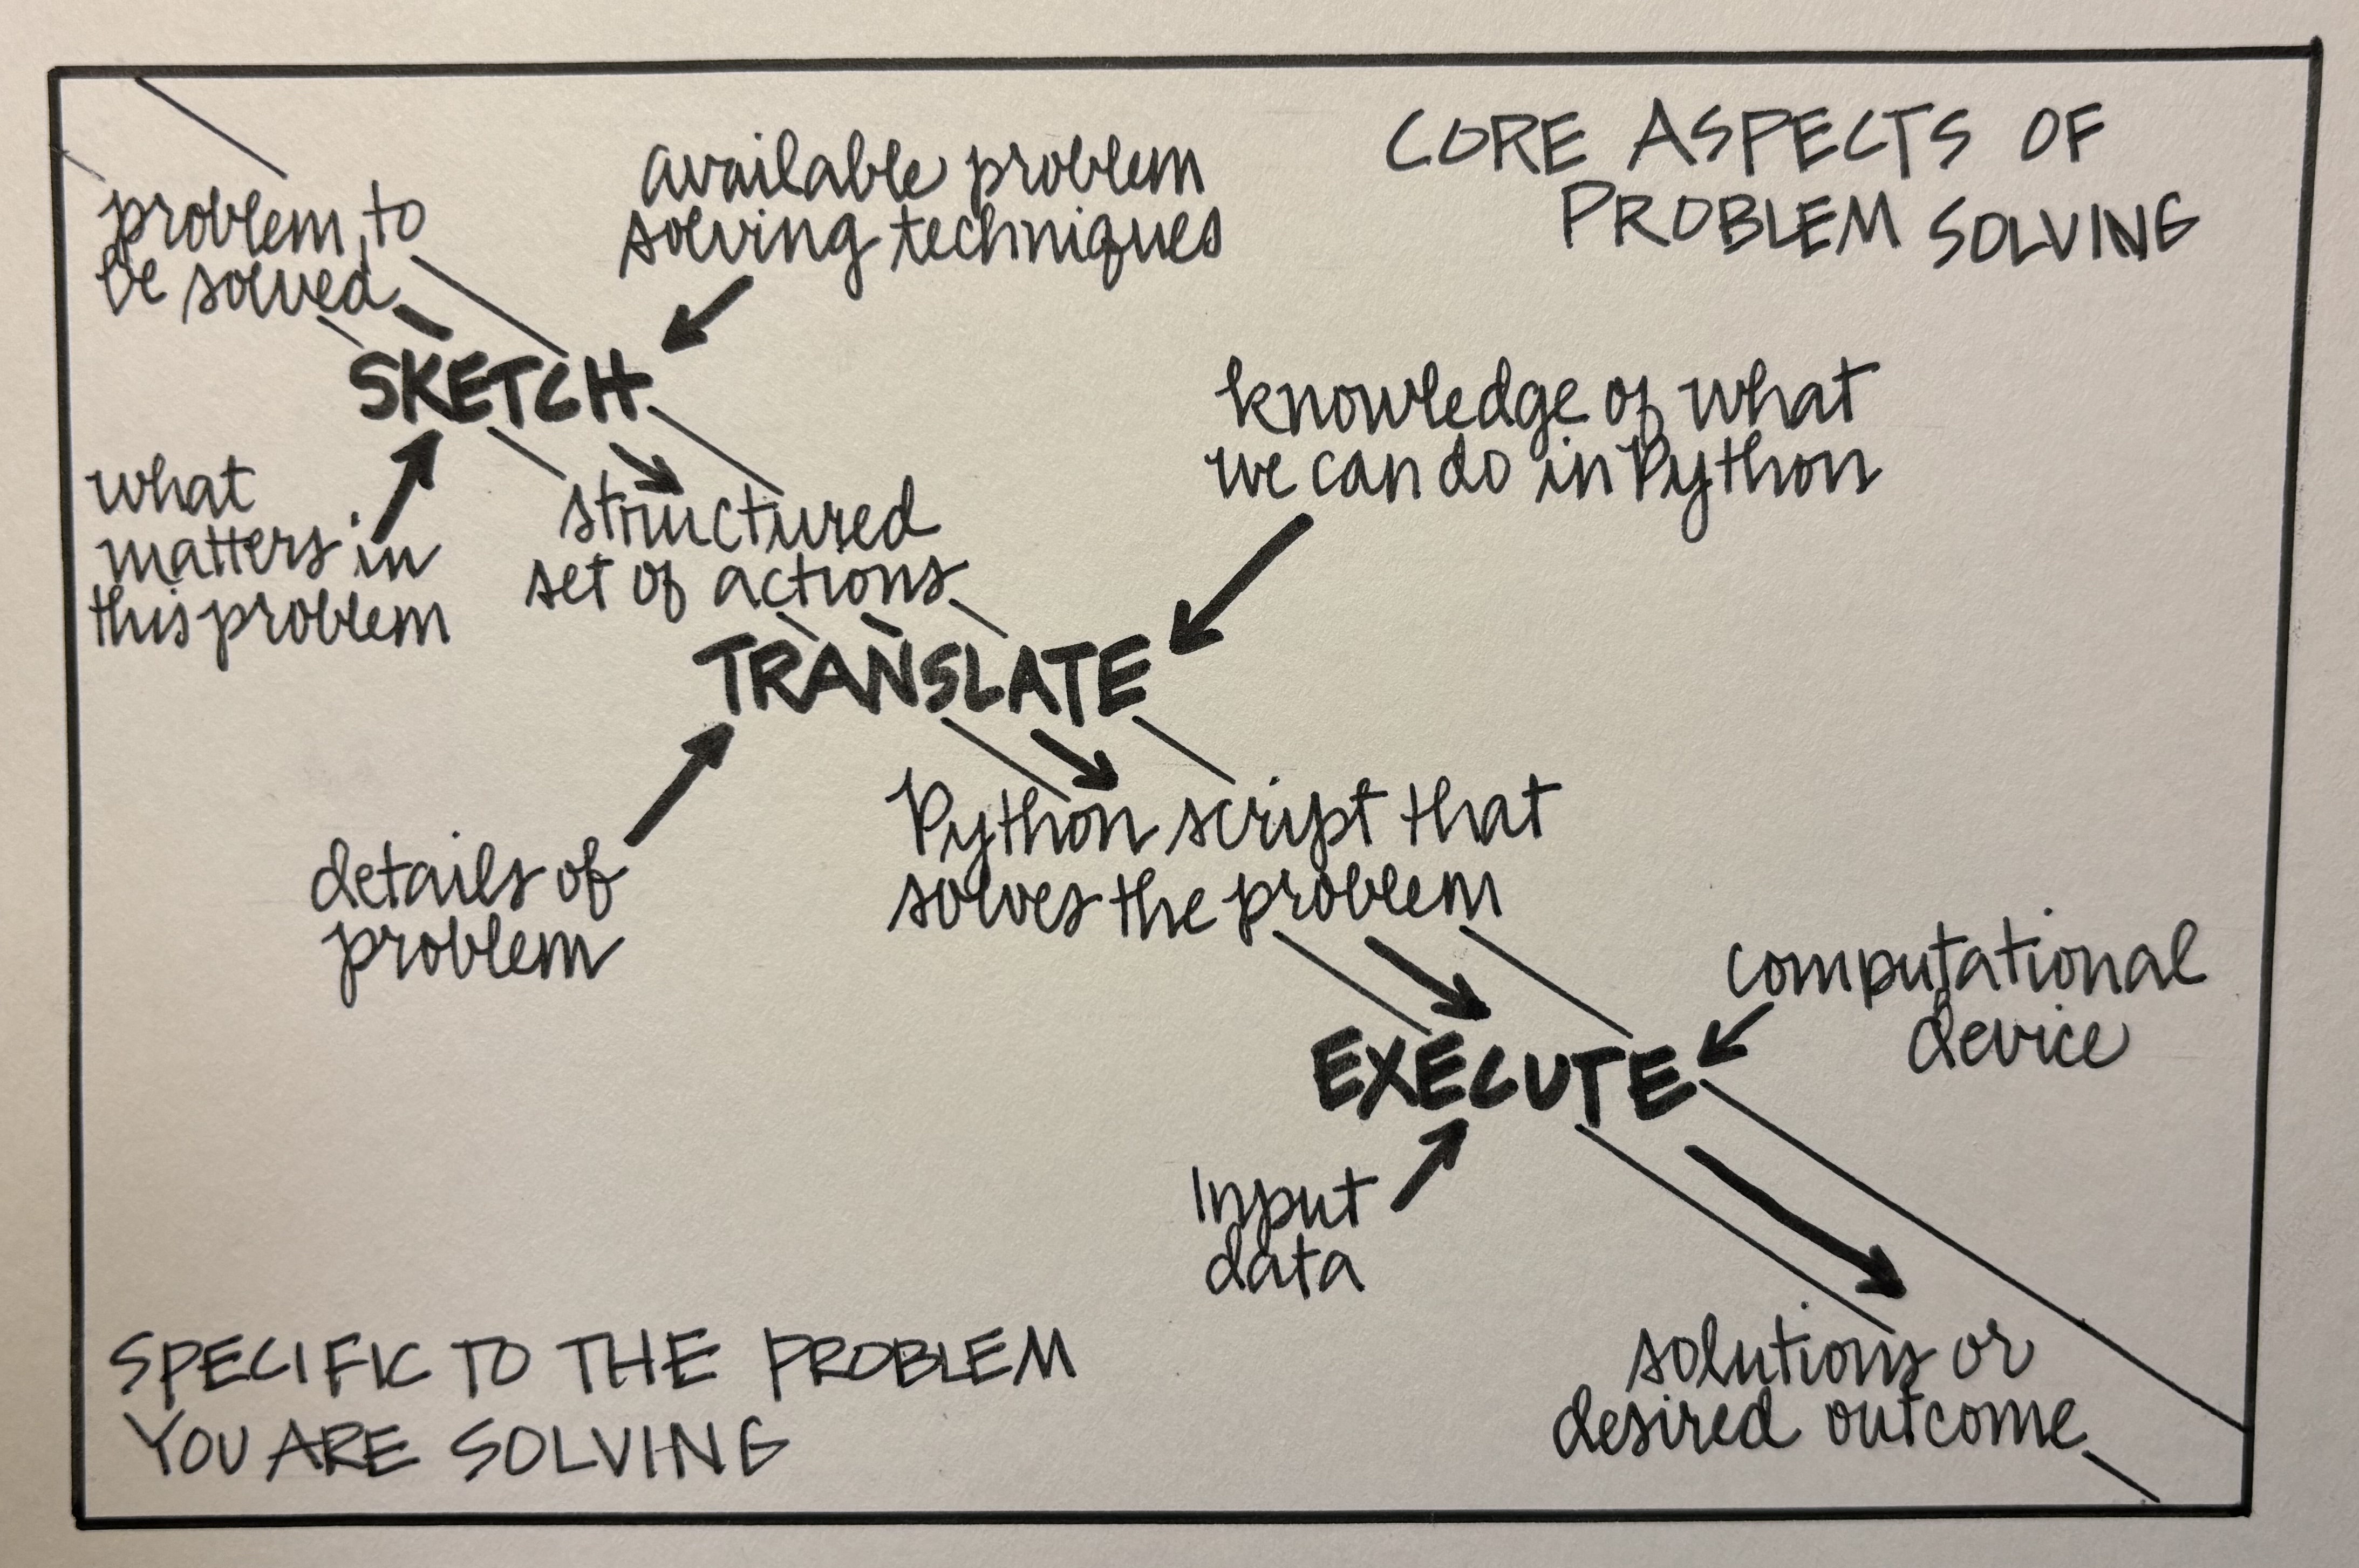 CORE ASPECTS OF
PROBLEM SOLVING
problem to
be solved
available problem
solving techniques
SKETCH
what
matters in
this problem
knowledge of what
we can do in Python
structured
set of actions
TRANSLATE
details of
problem
Python script that
solves the problem
computational
device
EXECUTE
Input
data
solutions or
desired outcome
SPECIFIC TO THE PROBLEM
YOU ARE SOLVING